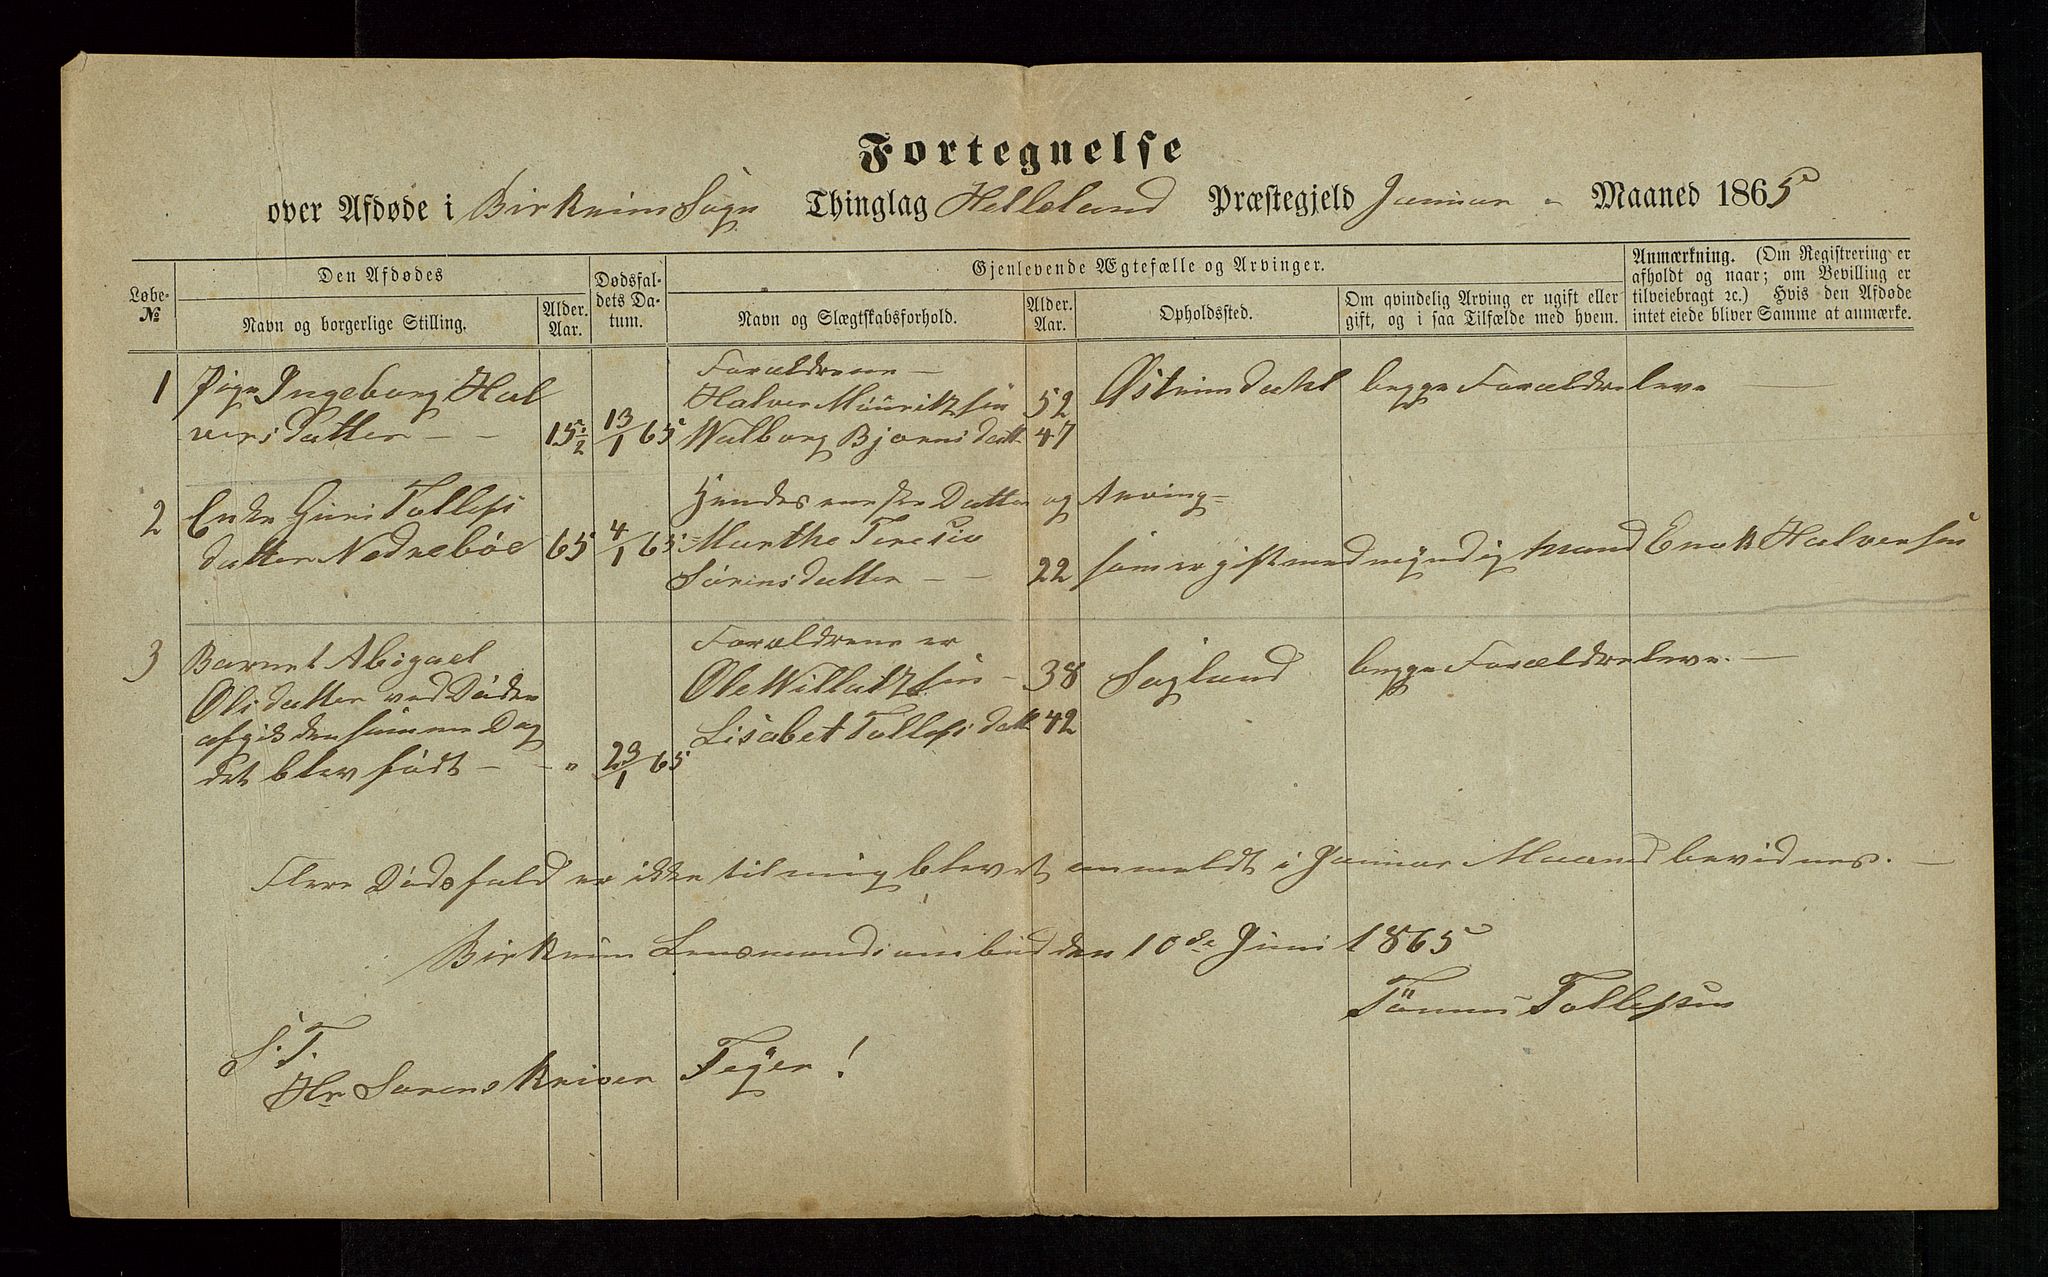 Fortegnelse
over Afdøde i Birkrim Sogn Thinglag Helleland Præstegjeld Januar - Maaned 1865
Løbe-
№
Den Afdødes
Navn og borgerlige Stilling.
Alder.
Aar.
Dødsfal-
dets Da-
tum.
Gjenlevende Ægtefælle og Arvinger.
Navn og Slægtskabsforhold.
Alder.
Aar.
Opholdssted.
Om qvindelig Arving er ugift eller
gift, og i saa Tilfælde med hvem.
Anmærkning. (Om Registrering er
afholdt og naar; om Bevilling er
tilveiebragt ec.) Hvis den Afdøde
intet eiede bliver Samme at anmærke.
1
Pige Ingeborg Hal
versdatter - -
15½
13/1 65
Forældrene -
Halver Mauritzsen 52
Walborg Bjornsdatt 47
Østrimdahl begge Forældre leve
2
Enke Guri Tollefs
datter Nedrebøe
65
4/1 65
Hendes eneste Datter og Arving=
Marthe Teresia
Sørensdatter - - 22
som er gift med myndig Mand Enok Halversen
3
Barnet Abigael
Olsdatter ved Døden
afgik den samme Dag
det blev født - - "
23/1 65
Forældrene er
Ole Willatzsen - 38
Lisabet Tollefsdatt 42
Sagland begge Forældre leve. -
Flere Dødsfald er ikke til mig blevet anmeldt i Januar Maaned bevidnes. -
Birkrim Lensmandsombud den 10de Juni 1865
Tønnes Tollefsen
S. T.
Hr Sorenskriver Feyer!